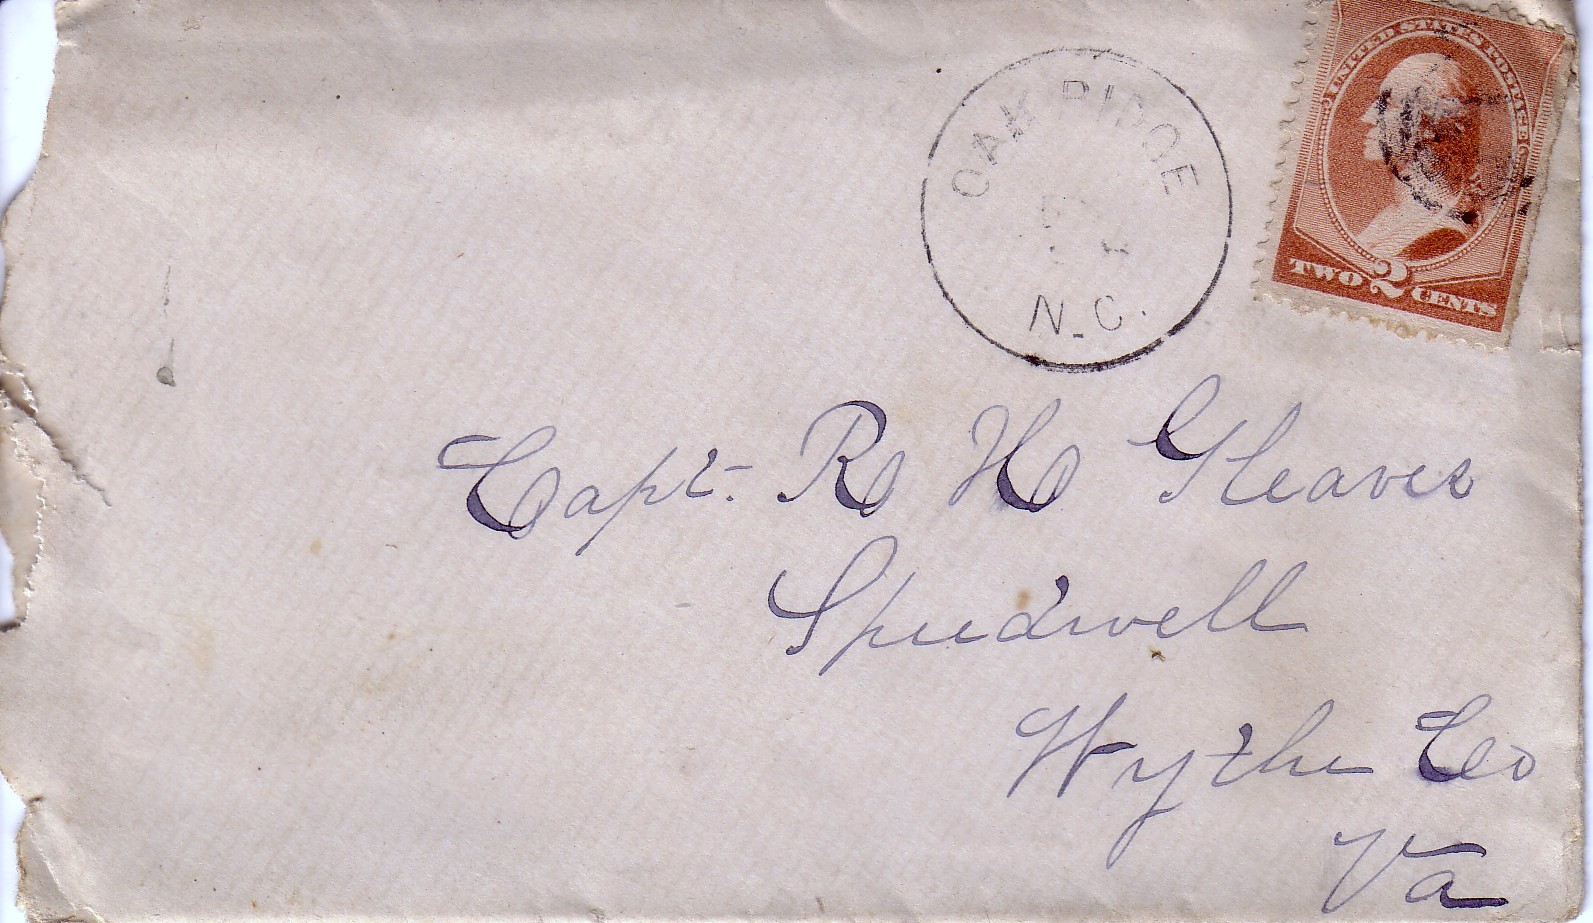 UNITED STATES POSTAGE
TWO 2 CENTS
OAK RIDGE
N.C.
Capt. R H Gleaves
Speedwell
Wythe Co
Va